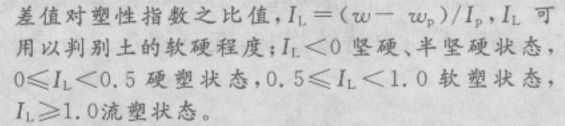 差值对塑性指数之比值,I_L=(w- w_p)/I_p,I_L 可
用以判别土的软硬程度;I_L<0 坚硬、半坚硬状态,
0≤I_L<0.5 硬塑状态,0.5≤I_L<1.0 软塑状态,
I_L≥1.0流塑状态。